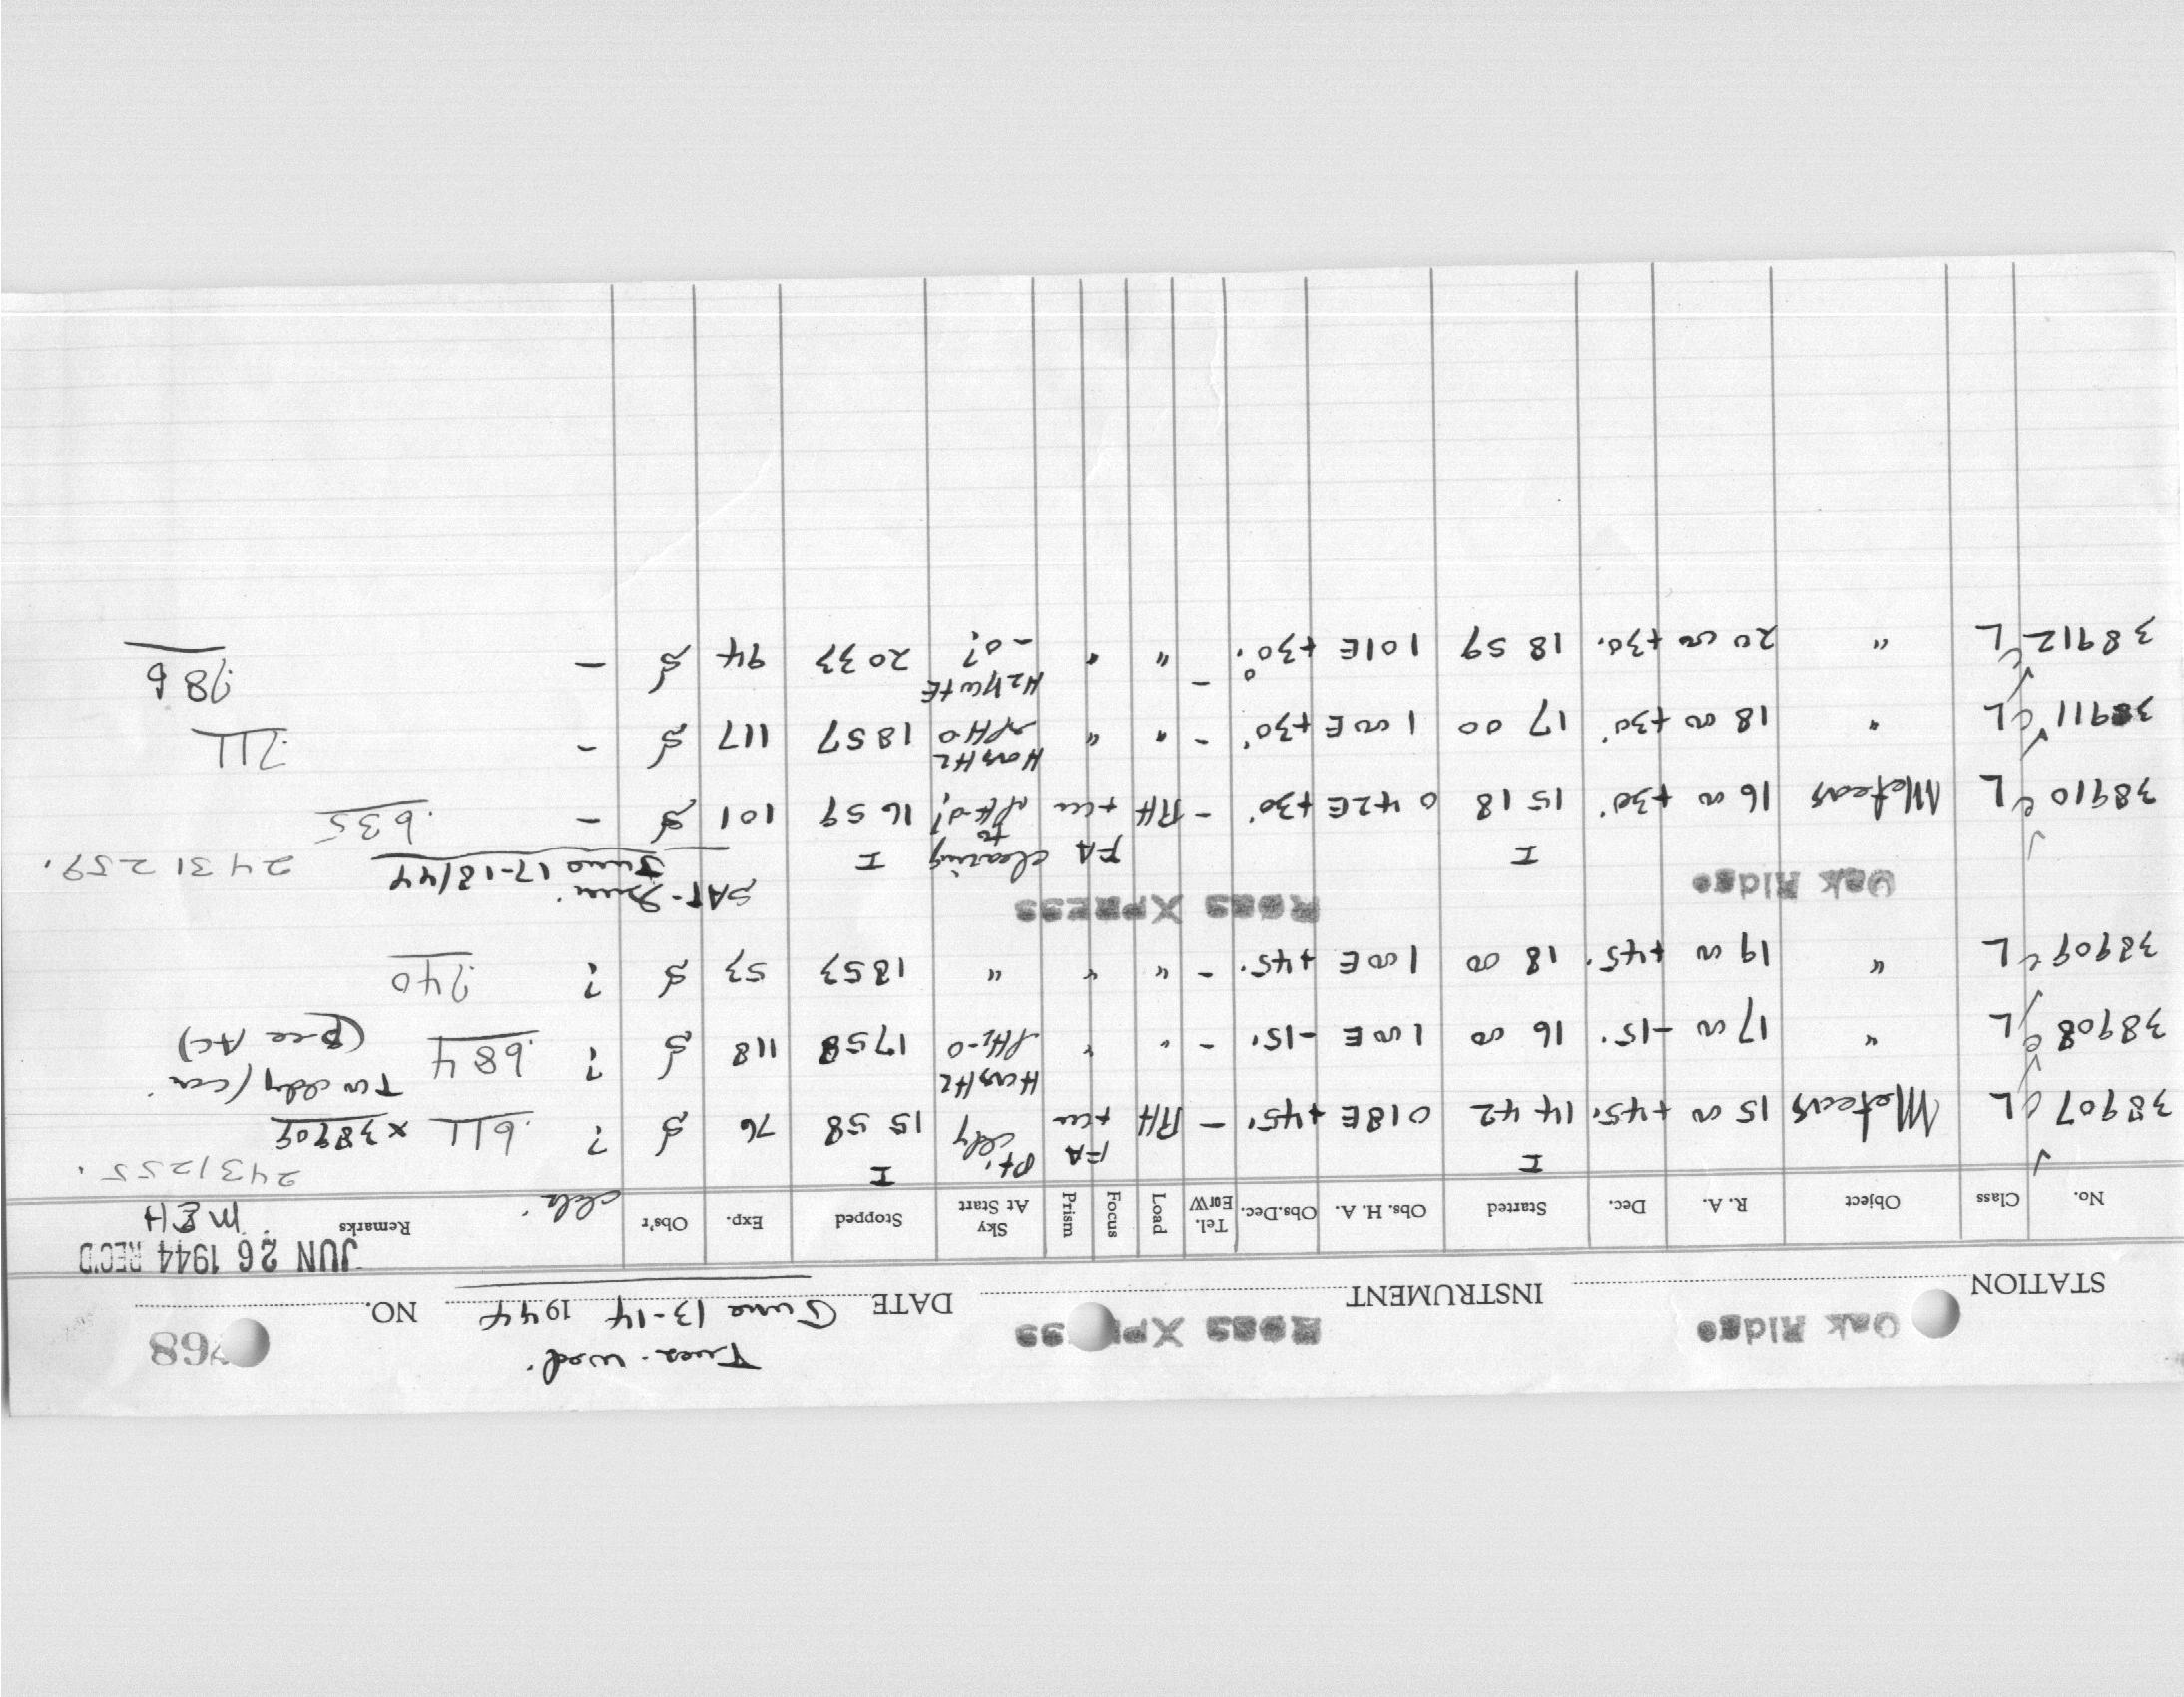 Tues - Wed.
STATION Oak Ridge INSTRUMENT Ross XPRESS DATE June 13-14 1944 NO. 768
JUN 26 1944 REC'D
No. Class Object R. A. Dec. Started Obs. H. A. Obs.Dec. Tel. E or W Load Focus Prism Sky At Start Stopped Exp. Obs'r Remarks
MEH
2431255.
38907 L Meteors 15 00 +45° I 14 42 0 18E +45° - RH FA Pt. cldy I 15 58 76 ? .611 x 38909
38908 L " 17 00 -15° 16 00 1 00 E -15° - " " 17 58 118 ? .684 (see AC)
38909 L " 19 00 +45° 18 00 1 00 E +45° - " " " 18 53 53 ? .740
Oak Ridge Ross XPRESS SAT - Sun. June 17-18/44 2431259.
38910 L Meteors 16 00 +30° I 15 18 0 42E +30° - RH FA clearing to I 16 59 101 - .635
38911 L " 18 00 +30° 17 00 1 00 E +30° - " " 18 57 117 - .711
38912 L " 20 00 +30° 18 59 1 01E +30° - " " 20 33 94 - .786